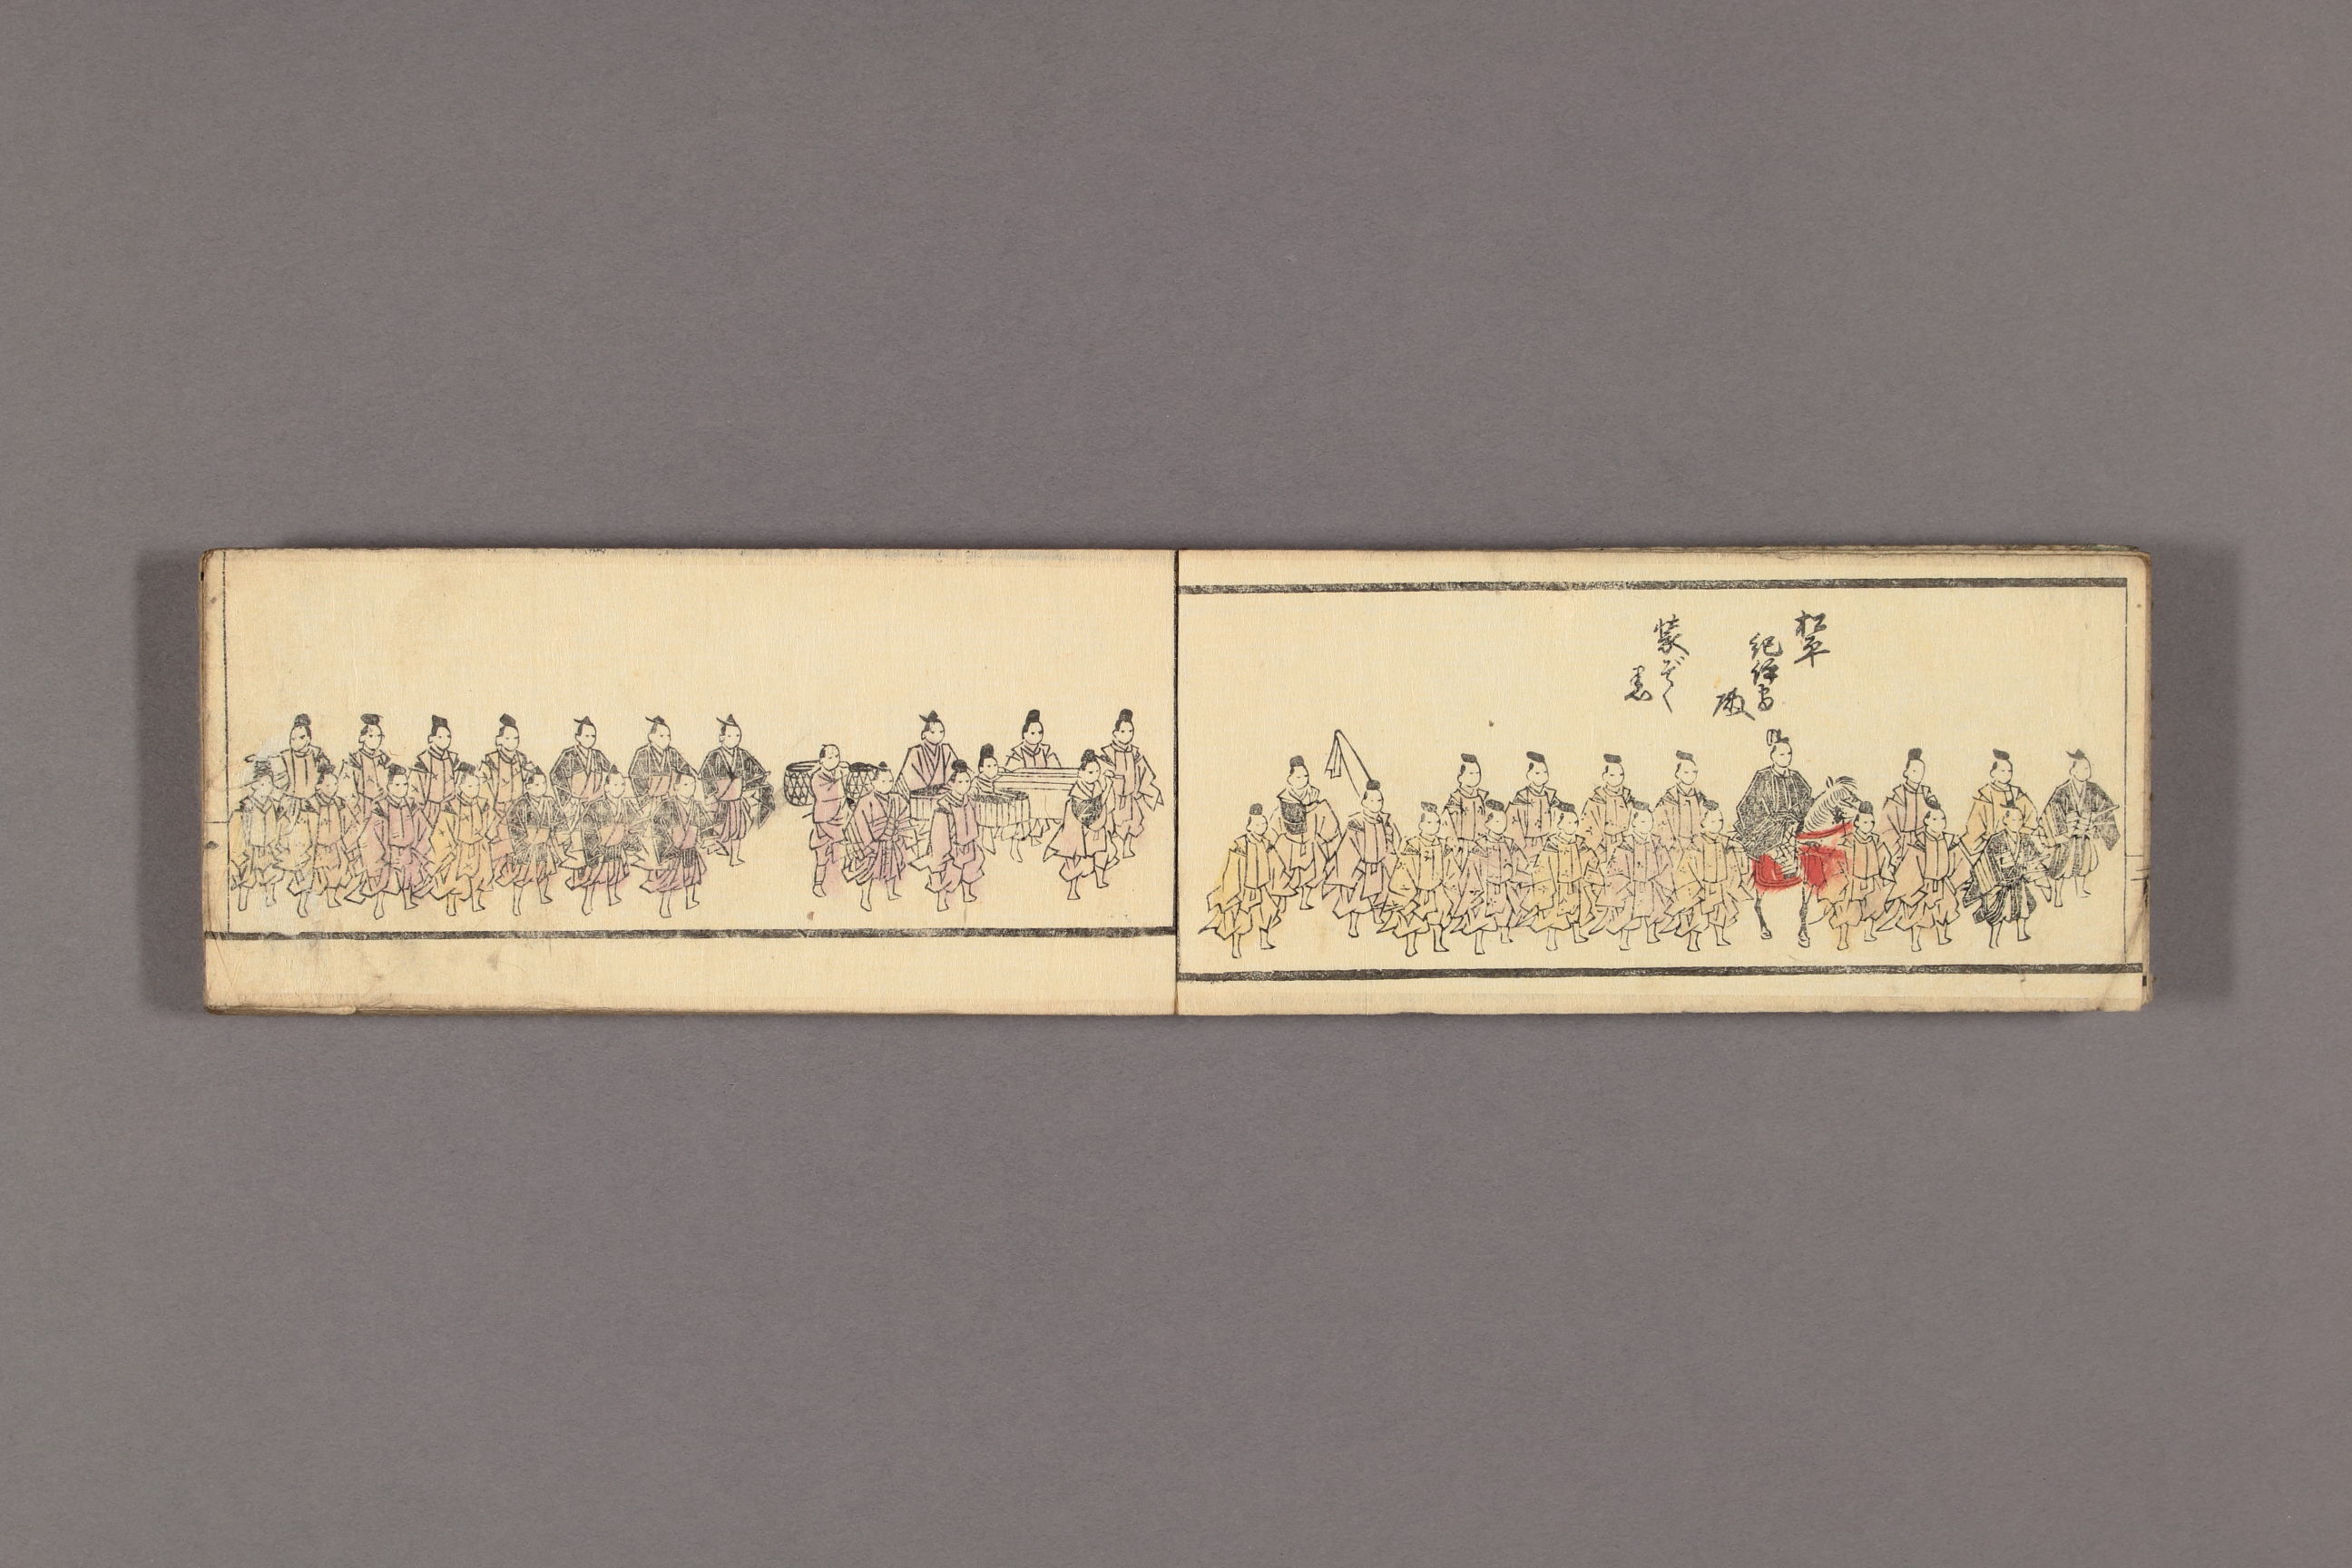 松平
紀伊守
殿
装ぞく
黒